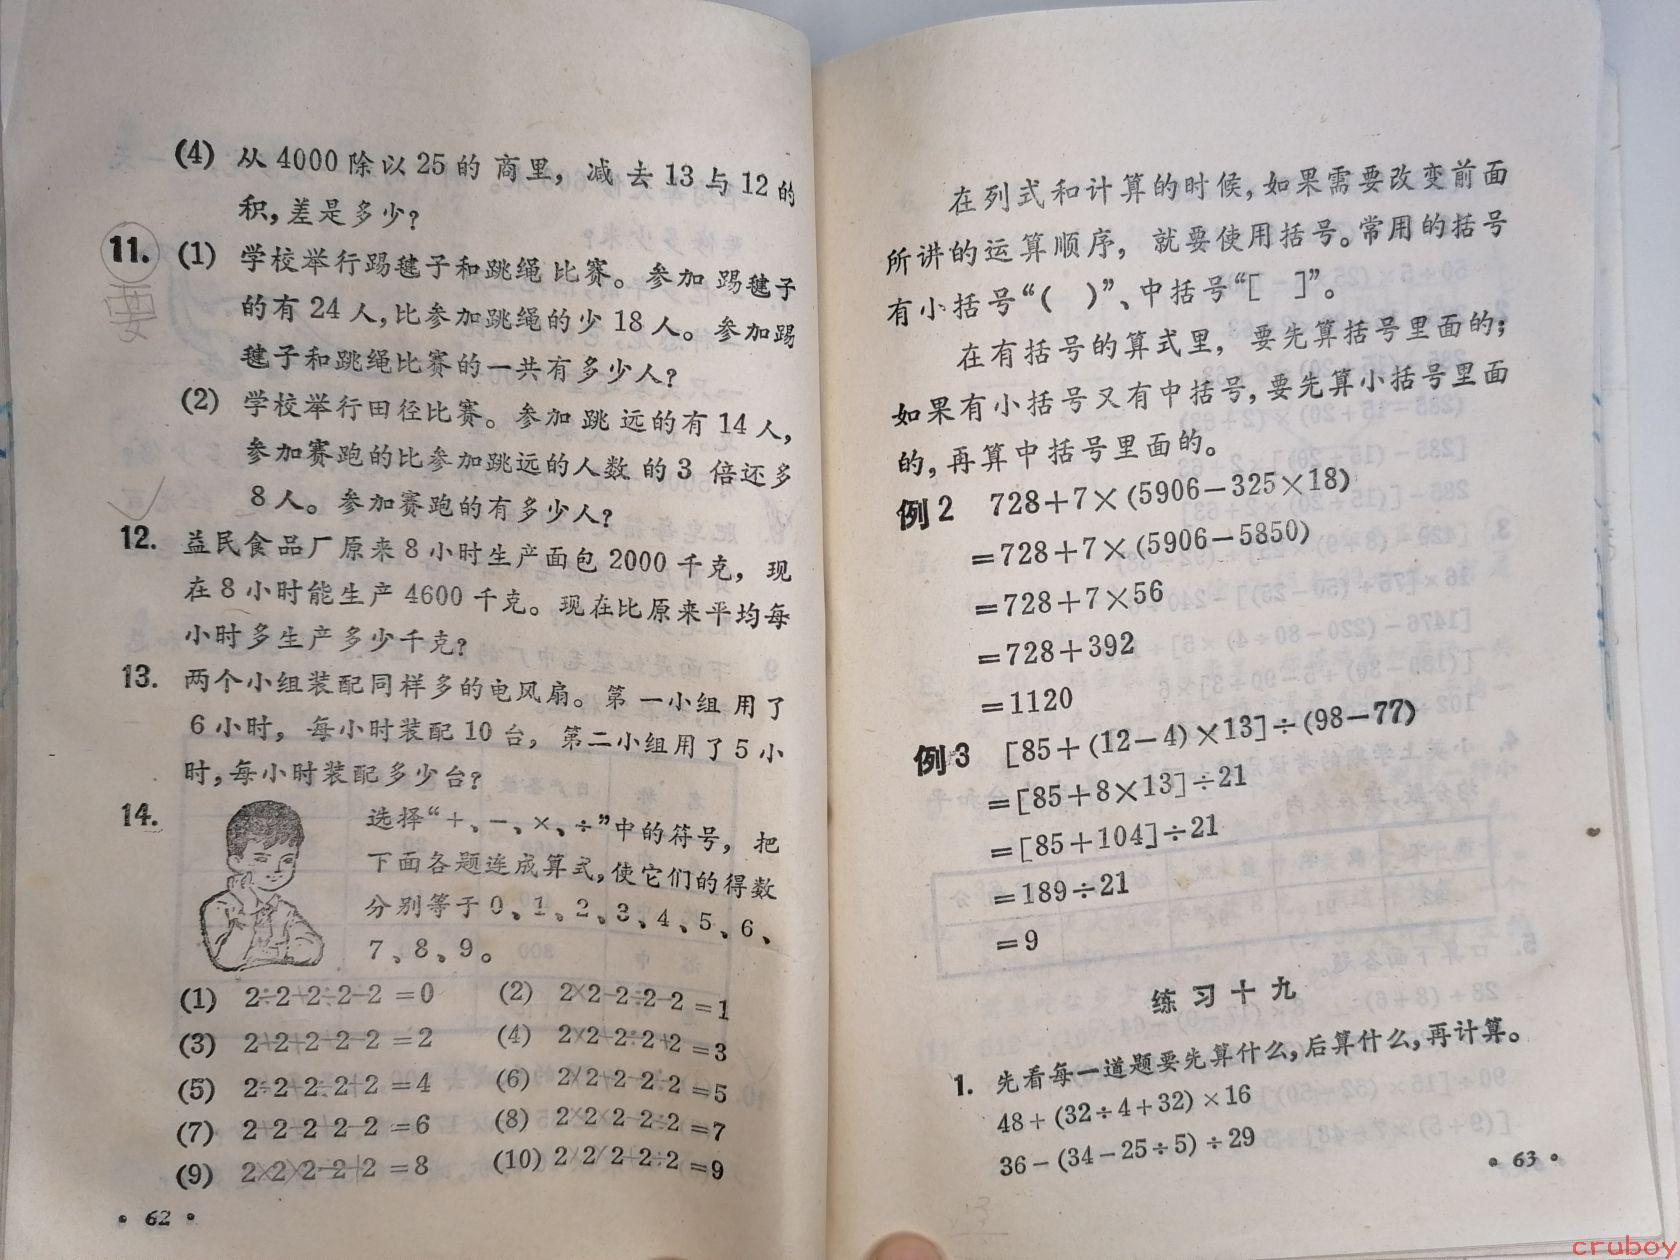 (4) 从4000除以25的商里，减去13与12的
积，差是多少？
11. (1) 学校举行踢毽子和跳绳比赛。参加踢毽子
的有24人，比参加跳绳的少18人。参加踢
毽子和跳绳比赛的一共有多少人？
要
(2) 学校举行田径比赛。参加跳远的有14人，
参加赛跑的比参加跳远的人数的3倍还多
8人。参加赛跑的有多少人？
12. 益民食品厂原来8小时生产面包2000千克，现
在8小时能生产4600千克。现在比原来平均每
小时多生产多少千克？
13. 两个小组装配同样多的电风扇。第一小组用了
6小时，每小时装配10台，第二小组用了5小
时，每小时装配多少台？
14. 选择“+、-、×、÷”中的符号，把
下面各题连成算式，使它们的得数
分别等于0、1、2、3、4、5、6、
7、8、9。
(1) 2÷2+2÷2-2=0 (2) 2×2-2÷2-2=1
(3) 2+2+2-2-2=2 (4) 2×2-2÷2+2... =3
(5) 2 2 2 2 2=4 (6) 2 2 2 2 2=5
(7) 2 2 2 2 2=6 (8) 2×2×2-2÷2=7
(9) 2×2×2-2+2=8 (10) 2 2 2 2 2=9
• 62 •
在列式和计算的时候，如果需要改变前面
所讲的运算顺序，就要使用括号。常用的括号
有小括号“( )”、中括号“[ ]”。
在有括号的算式里，要先算括号里面的；
如果有小括号又有中括号，要先算小括号里面
的，再算中括号里面的。
例2 728+7×(5906-325×18)
=728+7×(5906-5850)
=728+7×56
=728+392
=1120
例3 [85+(12-4)×13]÷(98-77)
=[85+8×13]÷21
=[85+104]÷21
=189÷21
=9
练习十九
1. 先看每一道题要先算什么，后算什么，再计算。
48+(32÷4+32)×16
36-(34-25÷5)÷29
• 63 •
cruboy